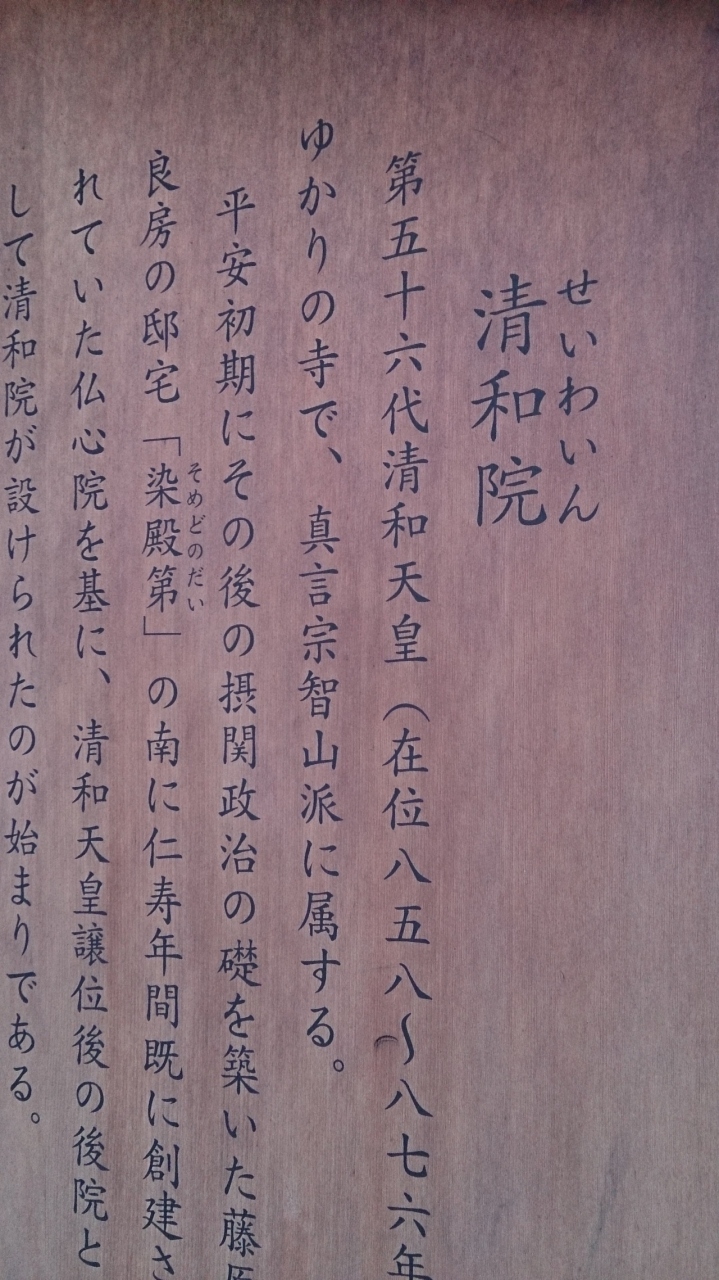 せいわいん
清和院
第五十六代清和天皇（在位八五八〜八七六年
ゆかりの寺で、真言宗智山派に属する。
平安初期にその後の摂関政治の礎を築いた藤原
そめどのだい
良房の邸宅「染殿第」の南に仁寿年間既に創建さ
れていた仏心院を基に、清和天皇譲位後の後院と
して清和院が設けられたのが始まりである。